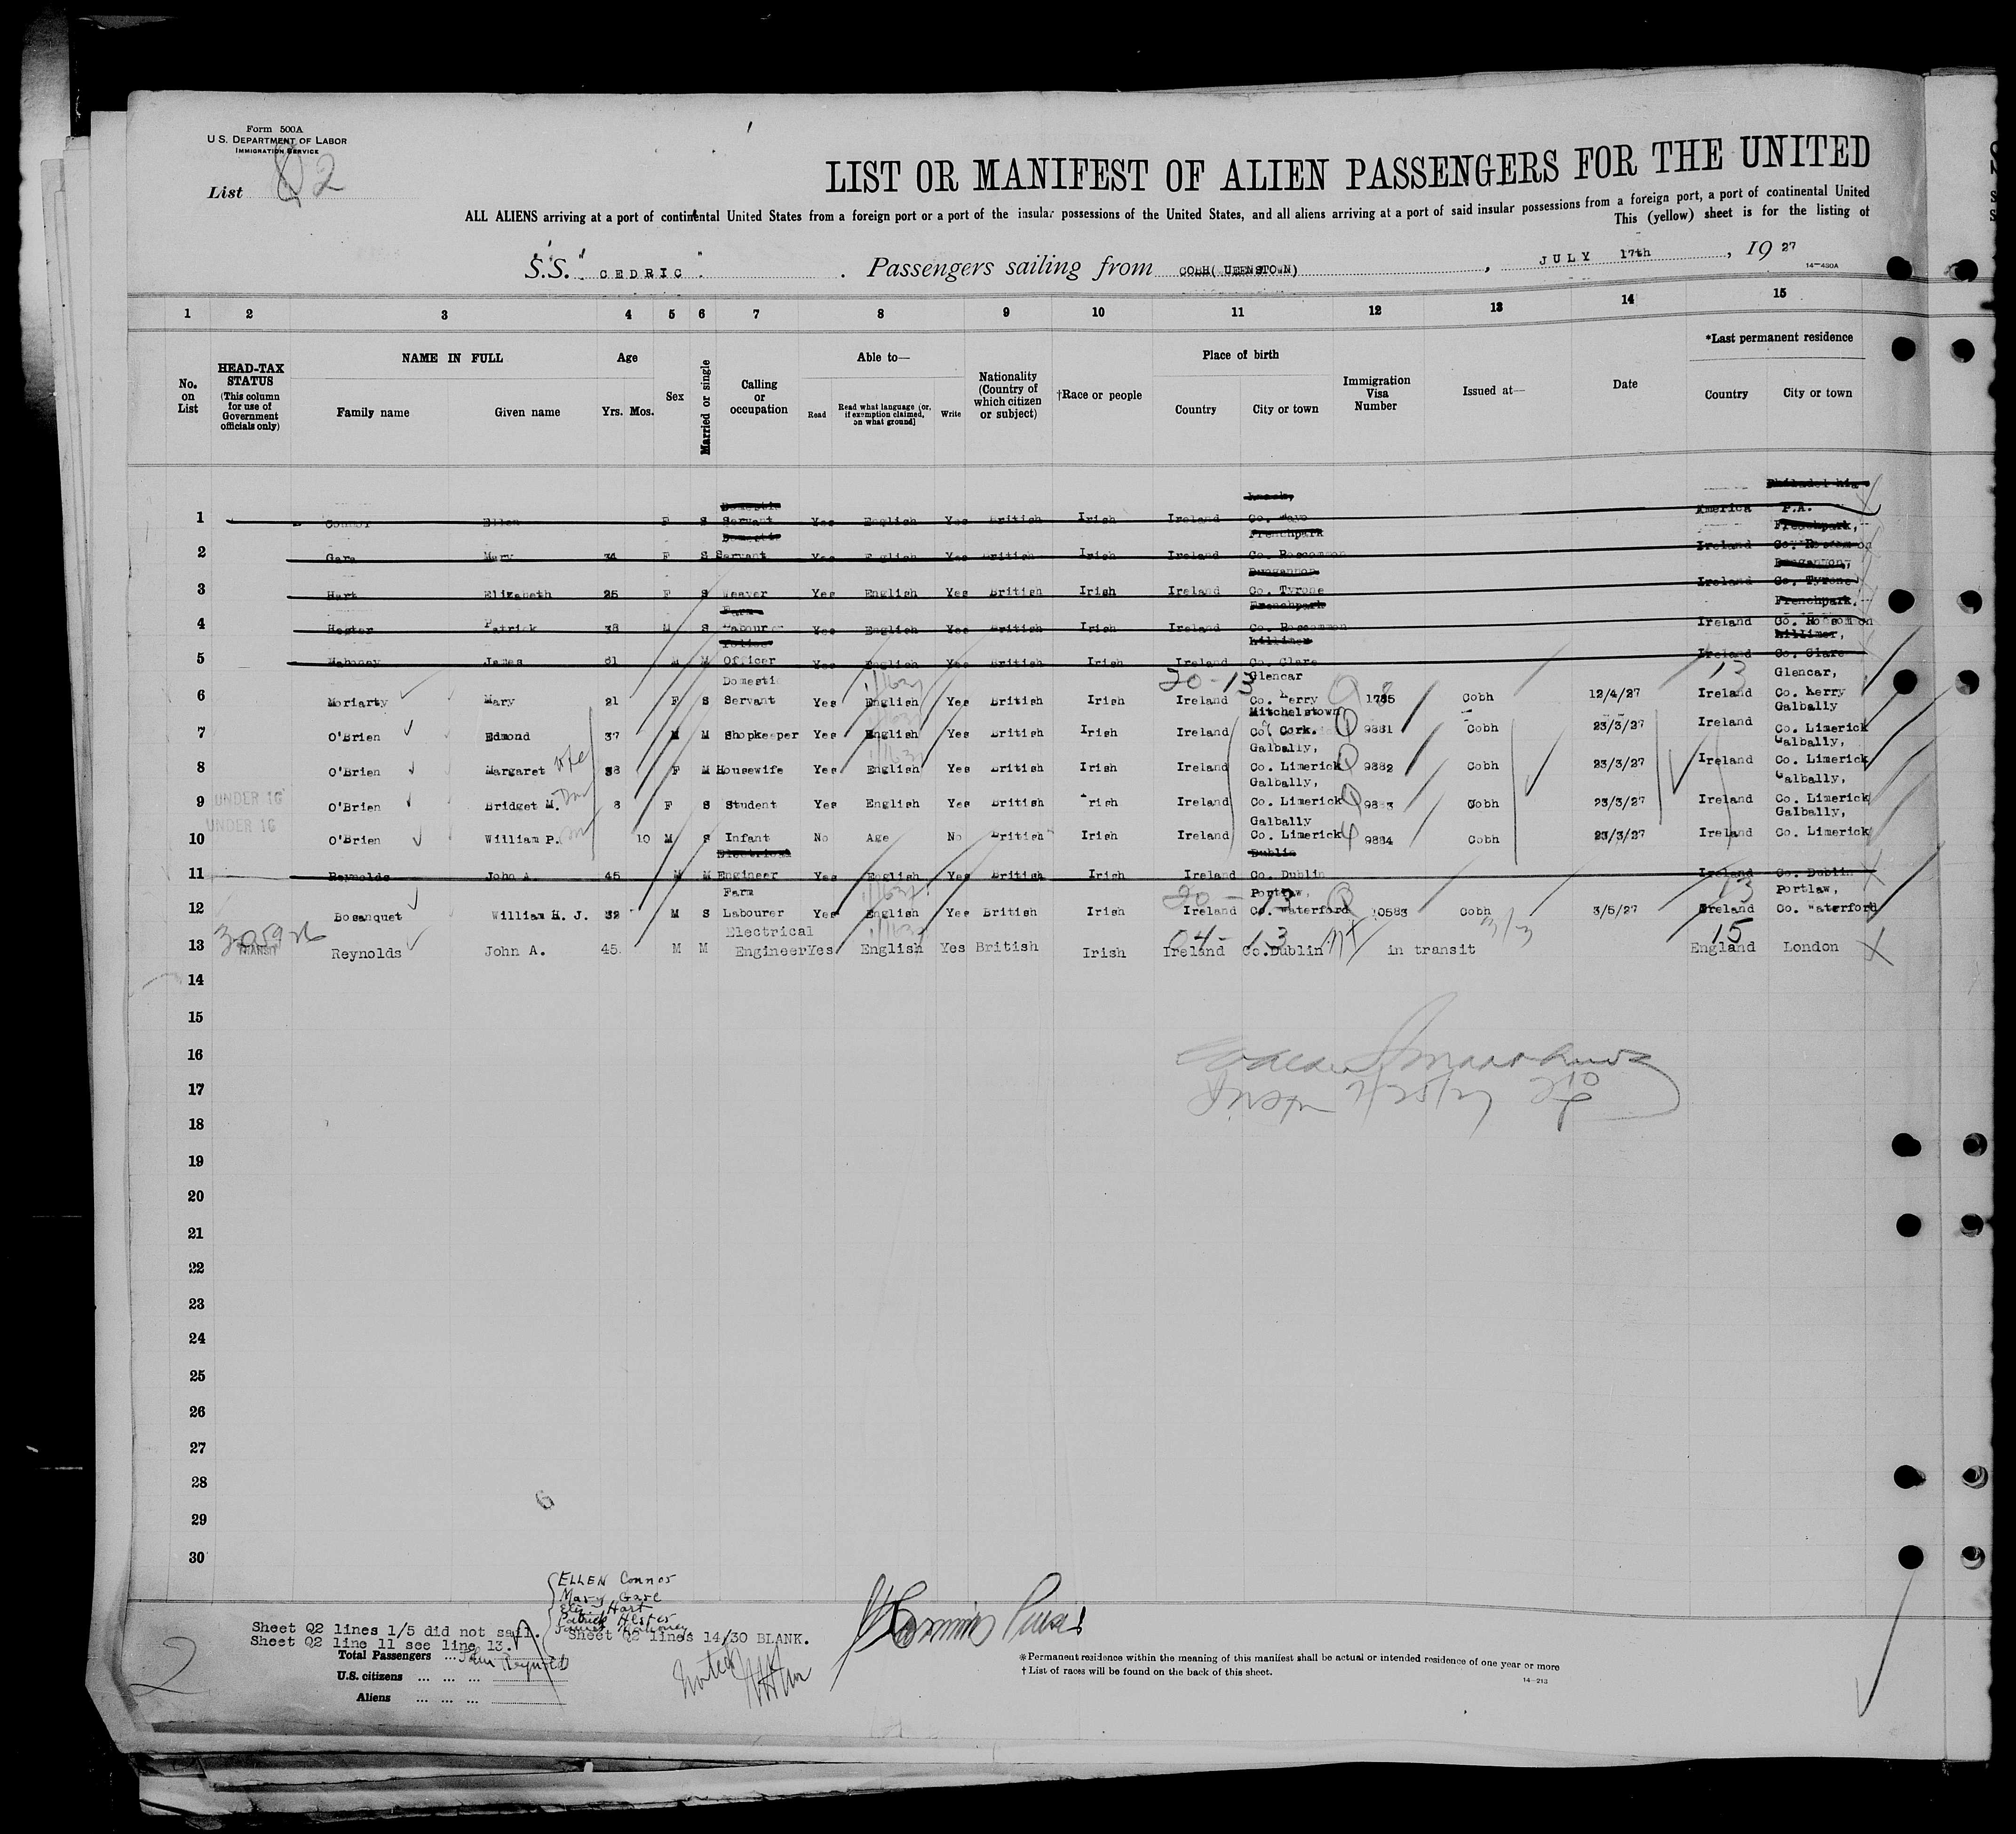 Form 500A
U.S. DEPARTMENT OF LABOR
IMMIGRATION SERVICE
List Q2
LIST OR MANIFEST OF ALIEN PASSENGERS FOR THE UNITED
ALL ALIENS arriving at a port of continental United States from a foreign port or a port of the insular possessions of the United States, and all aliens arriving at a port of said insular possessions from a foreign port, a port of continental United
This (yellow) sheet is for the listing of
S.S. "CEDRIC". Passengers sailing from COBH( UEENSTOWN), JULY 17th, 19 27
14-430A
1 2 3 4 5 6 7 8 9 10 11 12 13 14 15
No. on List
HEAD-TAX STATUS (This column for use of Government officials only)
NAME IN FULL
Family name Given name
Age
Yrs. Mos.
Sex
Married or single
Calling or occupation
Able to—
Read Read what language (or, if exemption claimed, on what ground) Write
Nationality (Country of which citizen or subject)
†Race or people
Place of birth
Country City or town
Immigration Visa Number
Issued at—
Date
*Last permanent residence
Country City or town
Domestic Philadel hia
1 Connor Ellen F S Servant Yes English Yes British Irish Ireland Co. Mayo America P.A.
Domestic Frenchpark Frenchpark,
2 Gara Mary 34 F S Servant Yes English Yes British Irish Ireland Co. Roscommon Ireland Co. Roscommon
Dungannon Dungannon,
3 Hart Elizabeth 25 F S Weaver Yes English Yes British Irish Ireland Co. Tyrone Ireland Co. Tyrone
Farm Frenchpark Frenchpark,
4 Hester Patrick 38 M S Labourer Yes English Yes British Irish Ireland Co. Roscommon Ireland Co. Roscommon
Police Killimer Killimer,
5 Mahoney James 31 M M Officer Yes English Yes British Irish Ireland Co. Clare Ireland Co. Clare
20-13 13
Domestic Glencar Glencar,
6 Moriarty Mary 21 F S Servant Yes English Yes British Irish Ireland Co. Kerry Q 1785 Cobh 12/4/27 Ireland Co. Kerry
Mitchelstown Galbally
7 O'Brien Edmond 37 M M Shopkeeper Yes English Yes British Irish Ireland Co. Cork. Q 9881 Cobh 23/3/27 Ireland Co. Limerick
Galbally, Galbally,
8 O'Brien Margaret wfe 38 F M Housewife Yes English Yes British Irish Ireland Co. Limerick Q 9882 Cobh 23/3/27 Ireland Co. Limerick
Galbally, Galbally,
9 UNDER 16 O'Brien Bridget M. 8 F S Student Yes English Yes British Irish Ireland Co. Limerick Q 9883 Cobh 23/3/27 Ireland Co. Limerick
Galbally Galbally,
10 UNDER 16 O'Brien William P. 10 M S Infant No Age No British Irish Ireland Co. Limerick 9884 Cobh 23/3/27 Ireland Co. Limerick
Electrical Dublin
11 Reynolds John A. 45 M M Engineer Yes English Yes British Irish Ireland Co. Dublin Ireland Co. Dublin
20-13 13
Farm Portlaw, Portlaw,
12 Bosanquet William H. J. 32 M S Labourer Yes English Yes British Irish Ireland Co. Waterford Q 10583 Cobh 3/5/27 Ireland Co. Waterford
04-13 15
Electrical
13 TRANSIT Reynolds John A. 45 M M Engineer Yes English Yes British Irish Ireland Co.Dublin in transit England London
14
15
16
17
18
19
20
21
22
23
24
25
26
27
28
29
30
7/25/27
6
ELLEN Connor
Mary Gare
Eliz Hart
Patrick Hester
James Mahoney
Sheet Q2 lines 1/5 did not sail. Sheet Q2 lines 14/30 BLANK.
Sheet Q2 line 11 see line 13.
John Reynolds
Total Passengers
U.S. citizens
Aliens
Noted
2
*Permanent residence within the meaning of this manifest shall be actual or intended residence of one year or more
†List of races will be found on the back of this sheet.
14-213